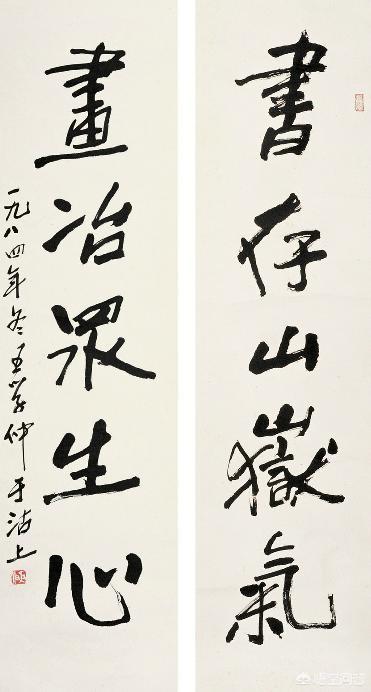 書存山嶽氣
畫冶眾生心
一九八四年冬王學仲于沽上